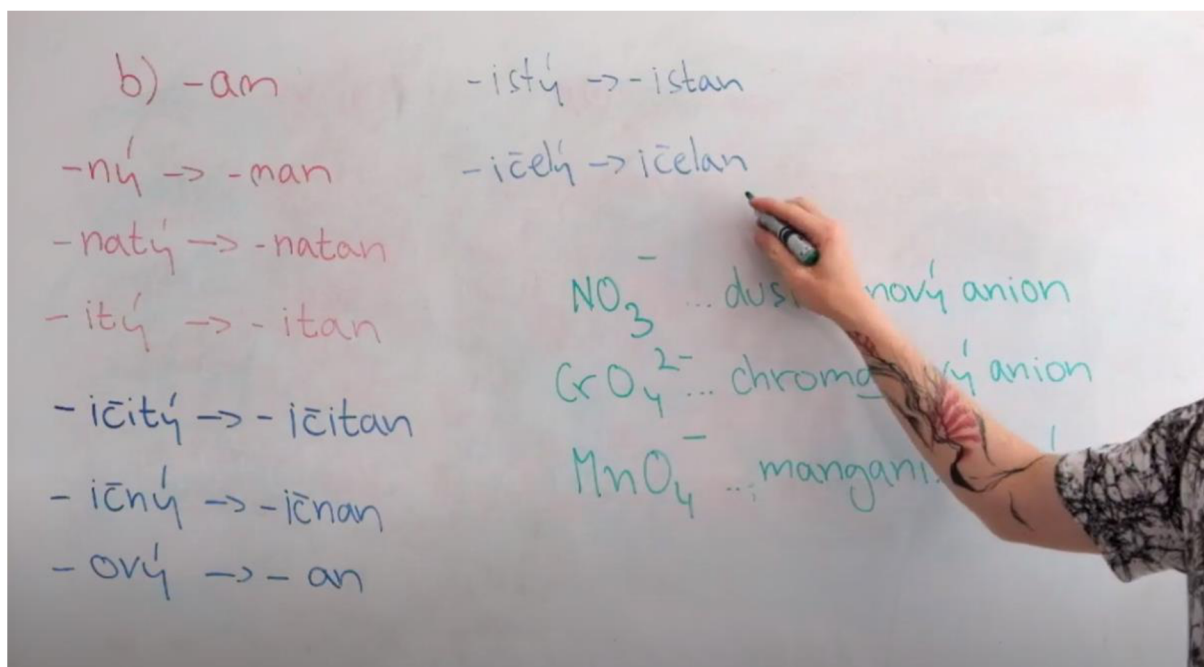 b) -an
-ný -> -nan
-natý -> -natan
-itý -> -itan
-ičitý -> -ičitan
-ičný -> -ičnan
-ový -> - an
-istý -> -istan
-ičelý -> ičelan
NO₃⁻ ... anion
CrO₄²⁻ ... anion
MnO₄⁻ ...